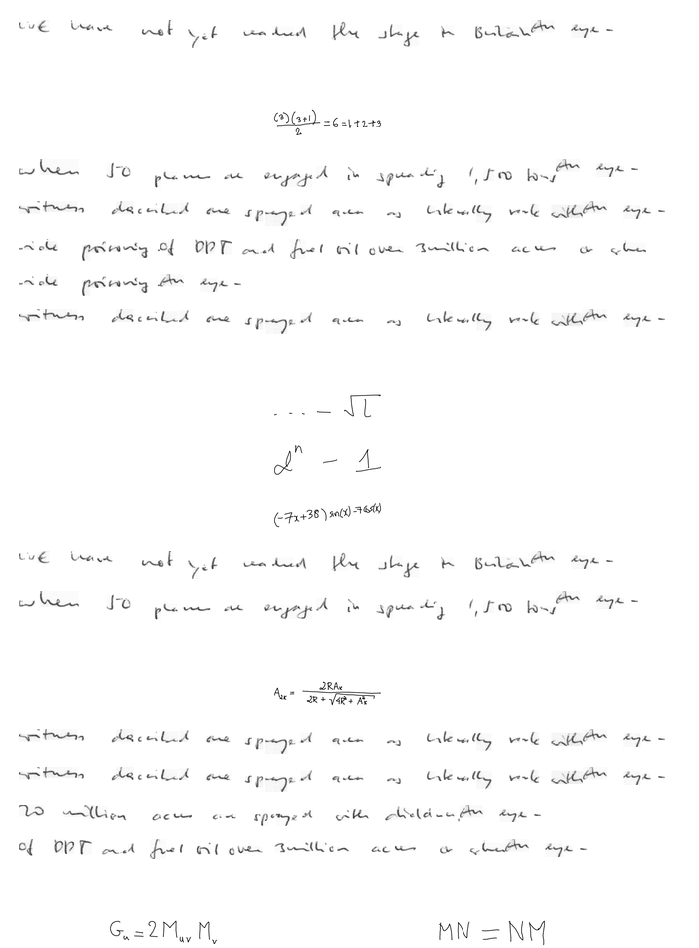 We have not yet reached the stage in Britain An eye-
\frac{(3)(3+1)}{2} = 6 = 1+2+3
when 50 planes are engaged in spreading 1,500 tons An eye-
witness described one sprayed area as literally reek with An eye-
-side poisoning of DDT and fuel oil over 3 million acres or when
-side poisoning An eye-
witness described one sprayed area as literally reek with An eye-
... - \sqrt{l}
2^n - 1
(-7x+38) sin(x) - 7 cos(x)
We have not yet reached the stage in Britain An eye-
when 50 planes are engaged in spreading 1,500 tons An eye-
A_{2x} = \frac{2RA_x}{2R + \sqrt{4R^2 + A_x^2}}
witness described one sprayed area as literally reek with An eye-
witness described one sprayed area as literally reek with An eye-
20 million acres are sprayed with An eye-
of DDT and fuel oil over 3 million acres or when An eye-
G_u = 2 M_{uv} M_v MN = NM